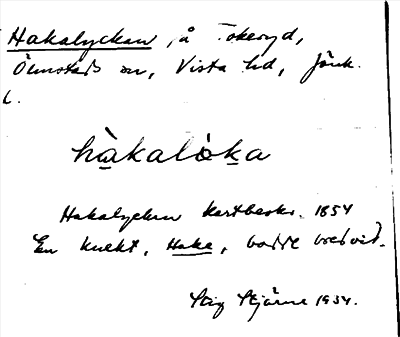 Hakalyckan, å Tokeryd,
Ölmstads sn, Vista hd, Jönk.
l.
hàkalo̍ka
Hakalyckan kartbeskr. 1854
En knekt, Hake, bodde bredvid.
Stig Stjärne 1934.